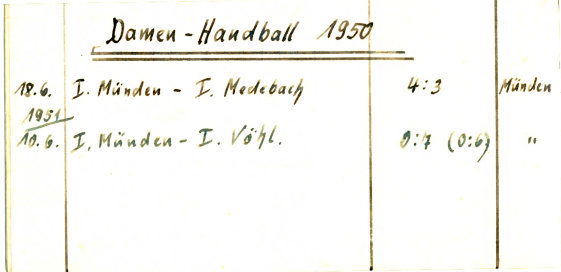 Damen-Handball 1950
18.6. I. Münden - I. Medebach 4:3 Münden
1951
10.6. I. Münden - I. Vöhl. 0:7 (0:6) "